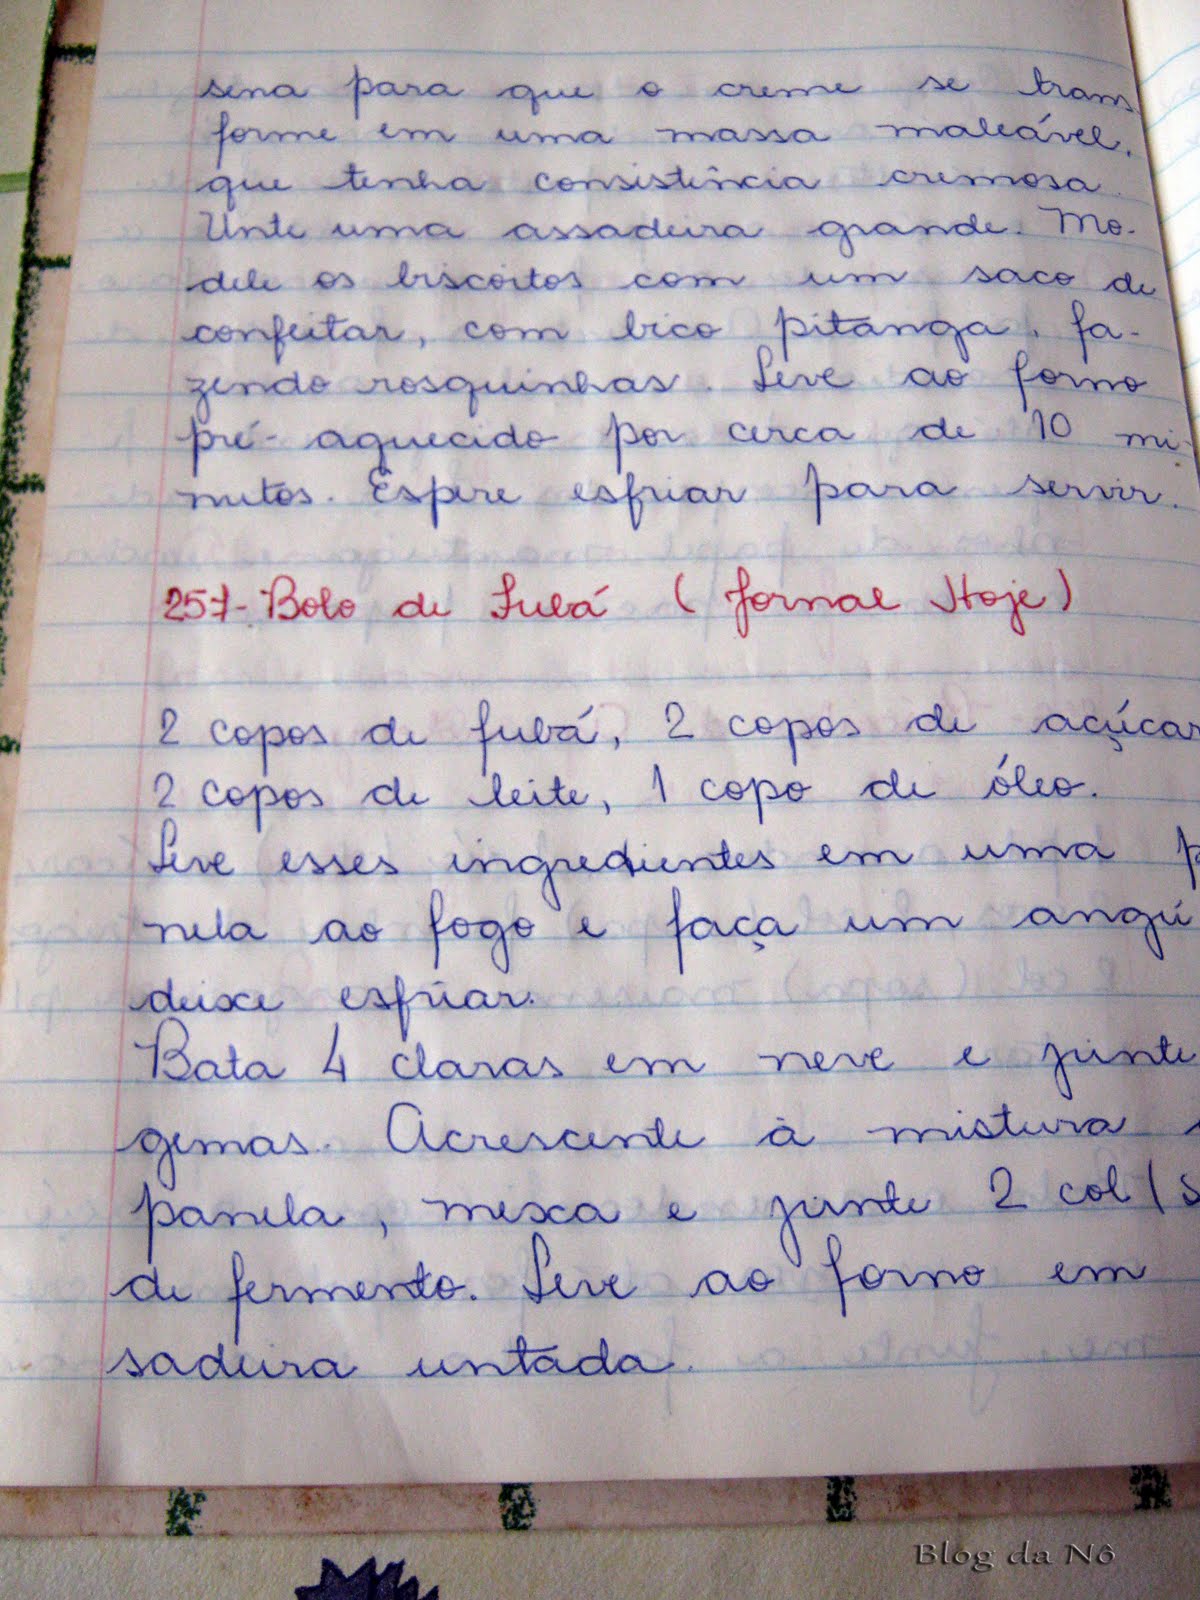 sena para que o creme se trans
forme em uma massa maleável,
que tenha consistência cremosa.
Unte uma assadeira grande. Mo-
dele os biscoitos com um saco de
confeitar, com bico pitanga, fa-
zendo rosquinhas. Leve ao forno
pré-aquecido por cerca de 10 mi-
nutos. Espere esfriar para servir.
257-Bolo de Fubá (Jornal Hoje)
2 copos de fubá, 2 copos de açúcar
2 copos de leite, 1 copo de óleo.
Leve esses ingredientes em uma p
nela ao fogo e faça um angú
deixe esfriar.
Bata 4 claras em neve e junte
gemas. Acrescente à mistura
panela, mexa e junte 2 col (s
de fermento. Leve ao forno em
sadeira untada.
Blog da Nô